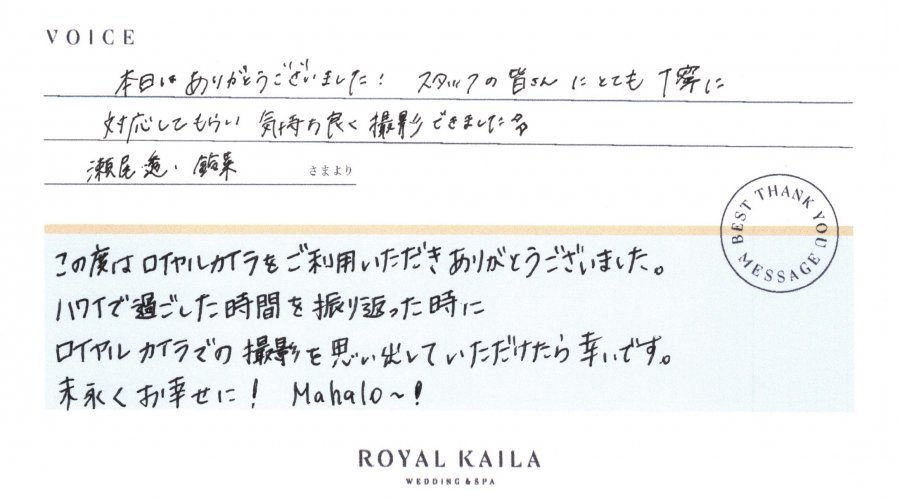 VOICE
本日は ありがとうございました! スタッフの皆さんにとても丁寧に
対応してもらい 気持ち良く撮影できました
瀬尾
さまより
BEST THANK YOU MESSAGE
この度はロイヤルカイラをご利用いただきありがとうございました。
ハワイで過ごした時間を振り返った時に
ロイヤルカイラでの撮影を思い出していただけたら幸いです。
末永くお幸せに! Mahalo~!
ROYAL KAILA
WEDDING & SPA